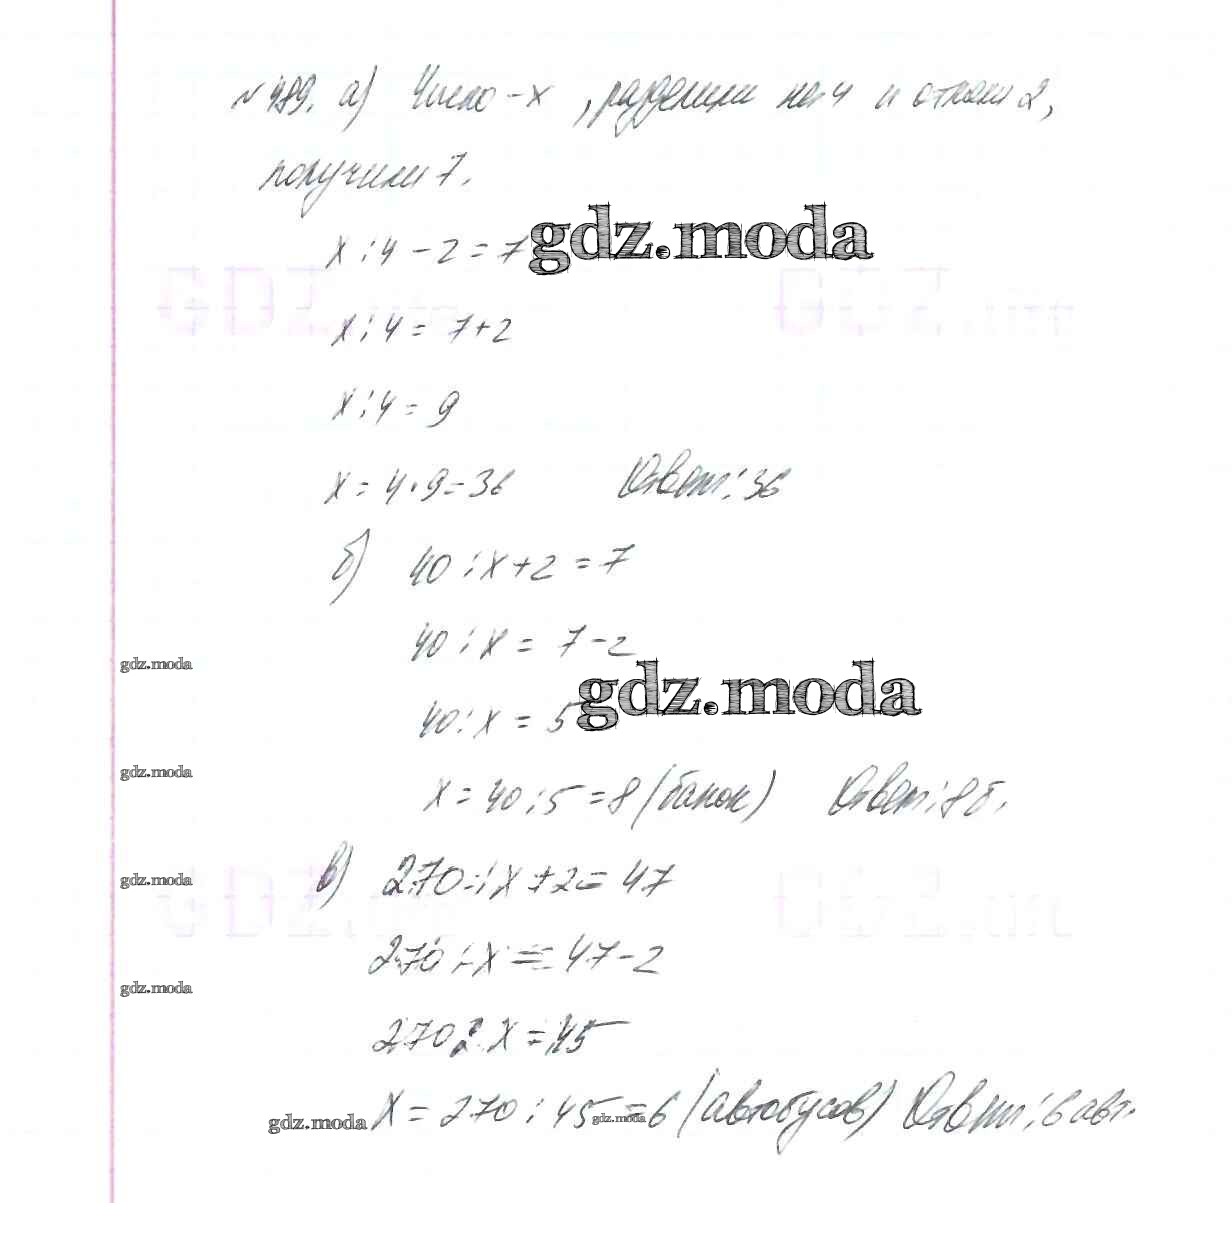 №489. а) Число - x, разделили на 4 и отняли 2,
получили 7.
x : 4 - 2 = 7
gdz.moda
x : 4 = 7 + 2
x : 4 = 9
x = 4 · 9 = 36 Ответ: 36
б) 40 : x + 2 = 7
40 : x = 7 - 2
gdz.moda
gdz.moda
40 : x = 5
gdz.moda
x = 40 : 5 = 8 (банок) Ответ: 8 б.
в) 270 : x + 2 = 47
gdz.moda
270 : x = 47 - 2
gdz.moda
270 : x = 45
gdz.moda x = 270 : 45 = 6 (автобусов) Ответ: 6 авт.
gdz.moda